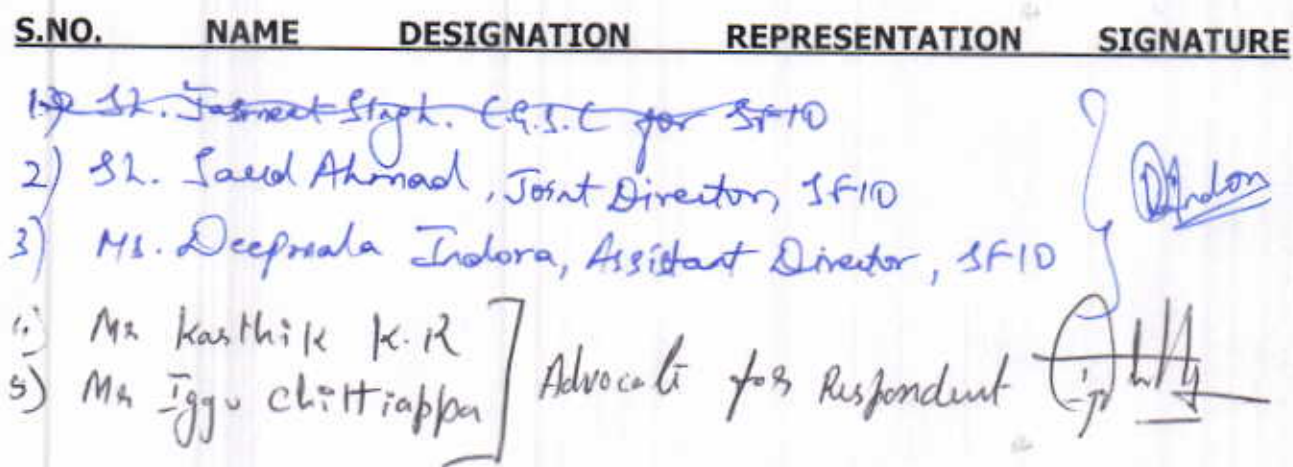 S.NO. NAME DESIGNATION REPRESENTATION SIGNATURE
1) Sh. Jasmeet Singh. C.G.S.C for SFIO
2) Sh. Saeed Ahmad, Joint Director, SFIO
3) Ms. Deepmala Indora, Assistant Director, SFIO
Mr Karthik K.R
5) Mr Iggu Chittiappa
Advocate for Respondent